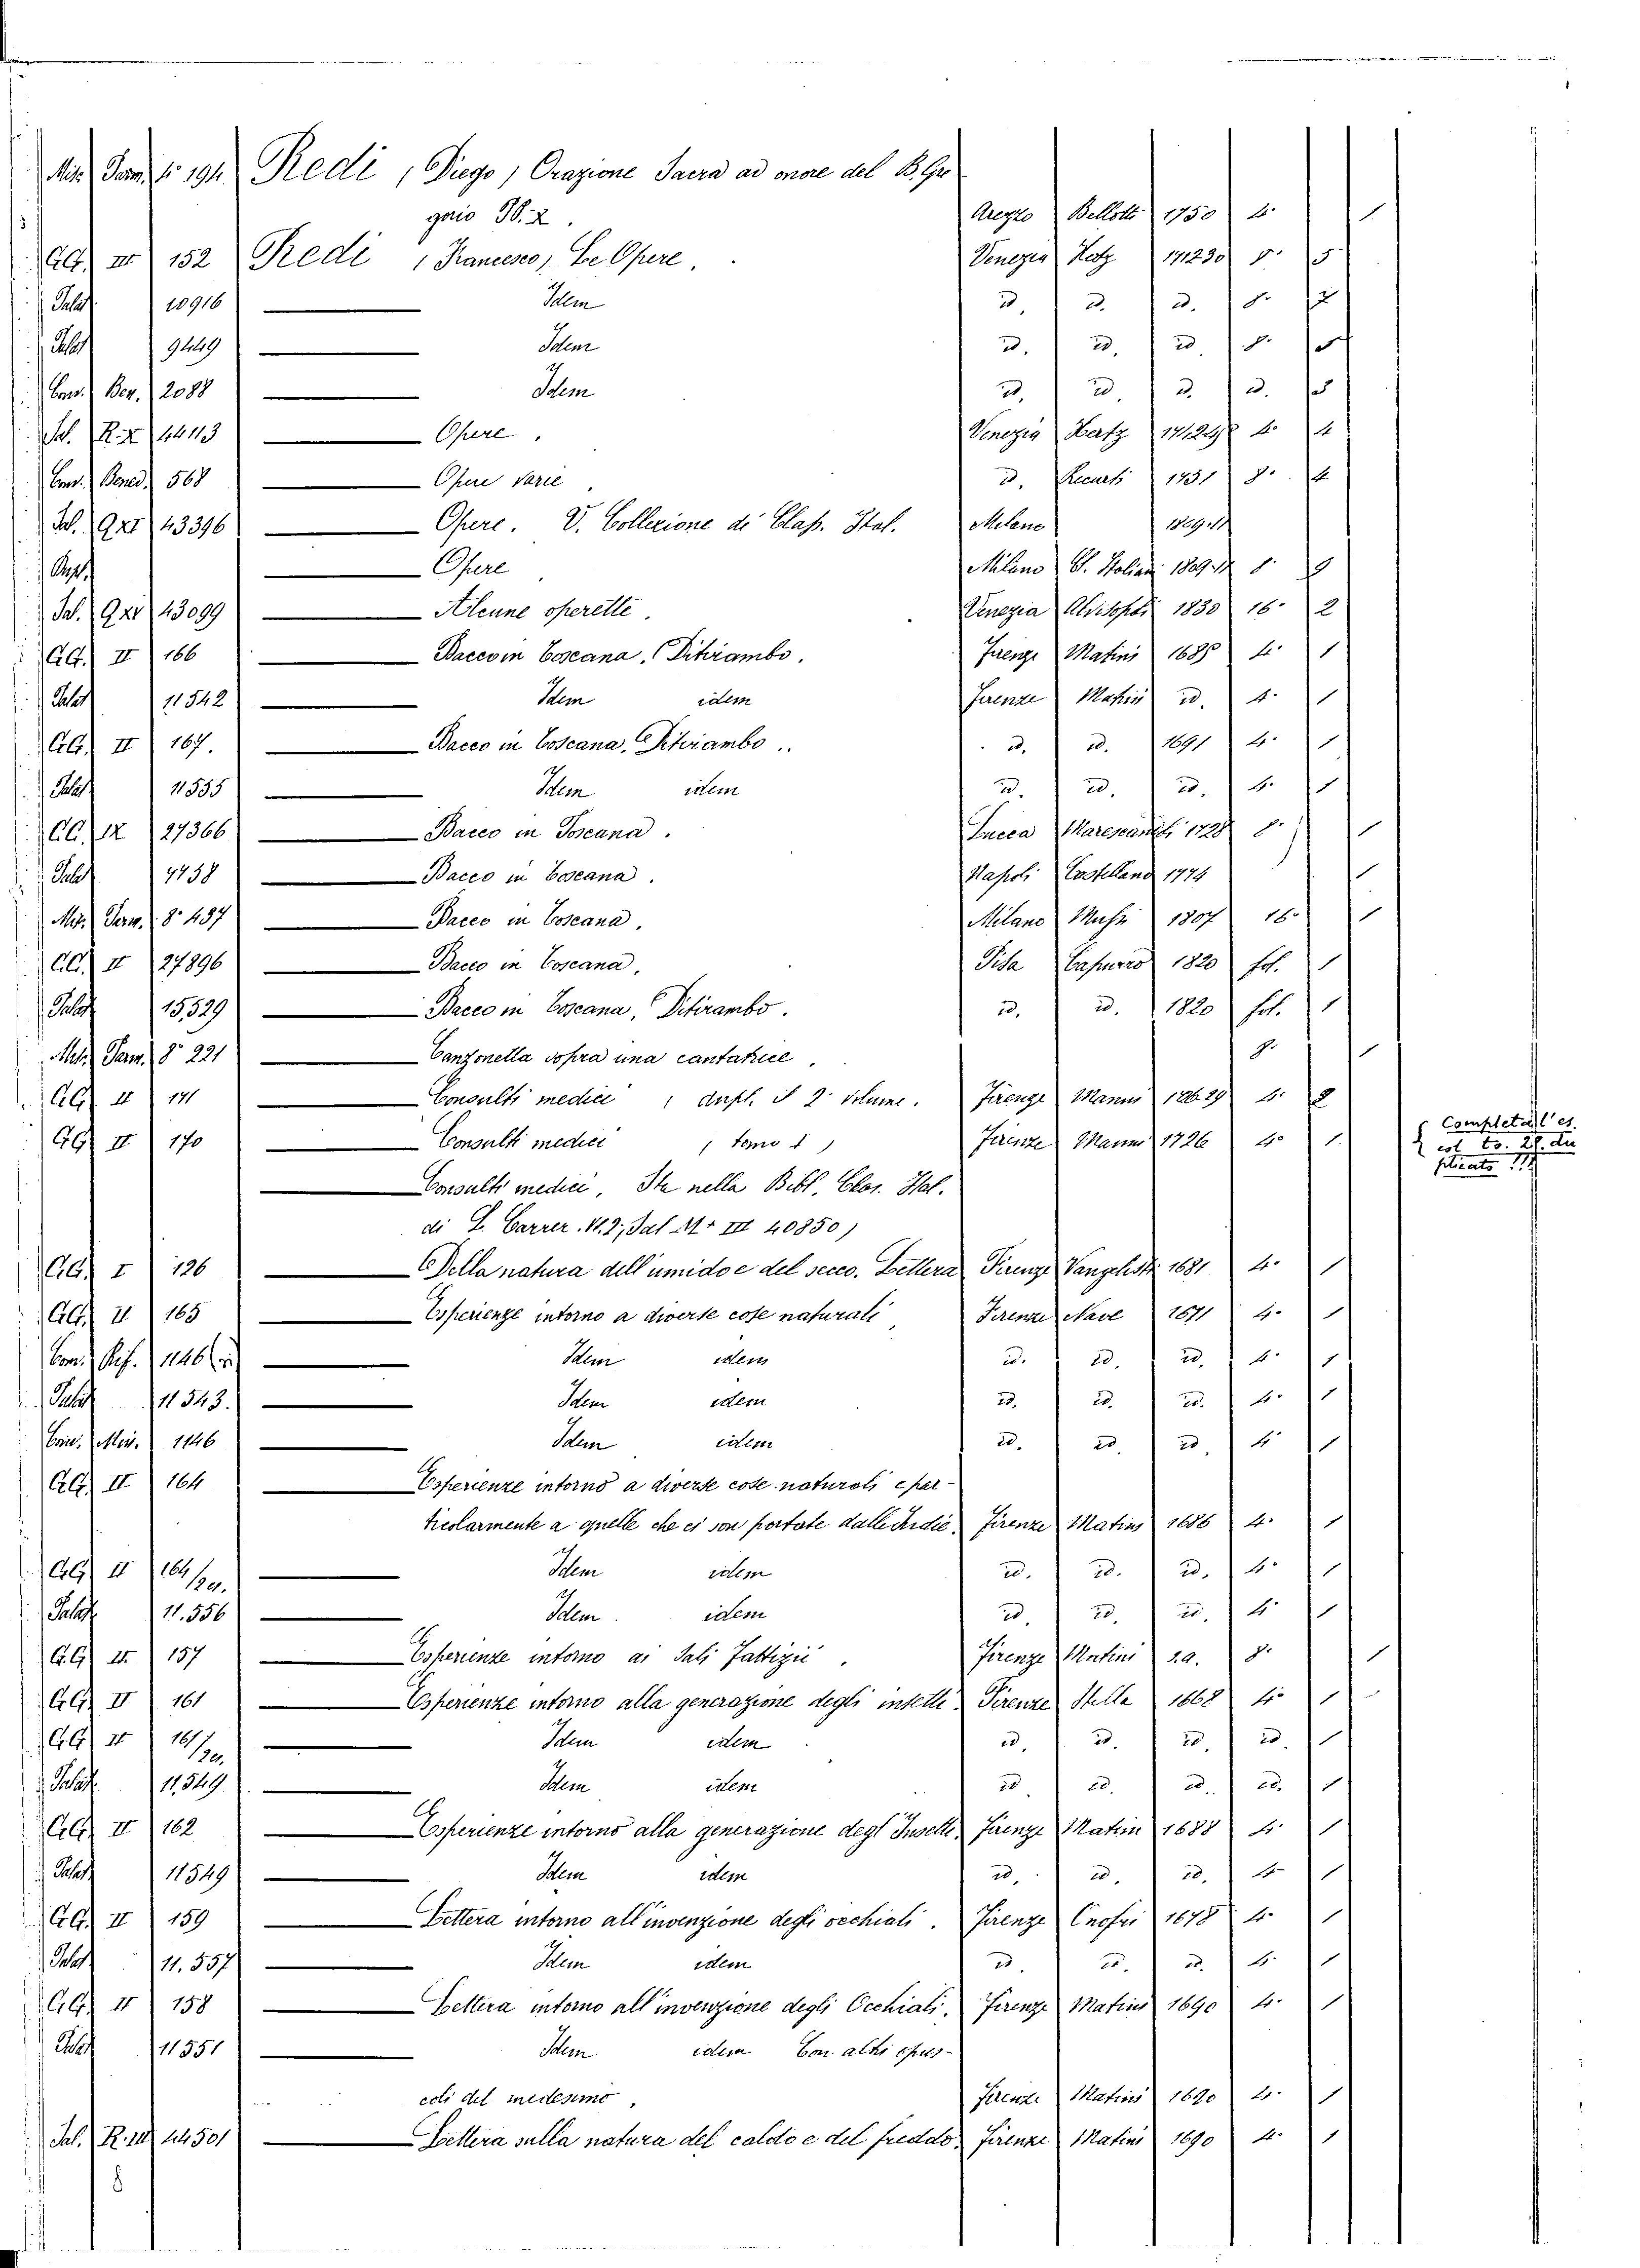 Mis. Parm. 4° 194 Redi, Diego, Orazione Sacra ad onore del B. Gre
gorio PP. X. Arezzo Bellotti 1750 4° 1
GG. III 152 Redi, Francesco, Le Opere. Venezia Hertz 1712.30 8° 5
Palat. 10916 Idem id. id. id. 8° 7
Palat. 9449 Idem id. id. id. 8°
Conv. Ben. 2088 Idem id. id. id. id. 5
Sal. R. X 44113 Opere. Venezia Hertz 1712.28 4° 4
Conv. Bened. 568 Opere varie id. Recurti 1731 8° 4
Sal. 43396 Opere. V. Collezione di Class. Ital. Milano 1809.11
Opere Milano C. Italiani 1809.11 8° 9
Sal. 43099 Alcune operette. Venezia Alvisopoli 1830 16° 2
GG. II 166 Bacco in Toscana. Ditirambo. Firenze Matini 1685 4° 1
Palat. 11542 Idem idem Firenze Matini id. 4° 1
GG. II 167. Bacco in Toscana, Ditirambo.. id. id. 1691 4° 1
Palat. 11555 Idem idem id. id. id. 4° 1
CC. IX 27366 Bacco in Toscana. Lucca Marescandoli 1728 8° 1
Palat. 7758 Bacco in Toscana. Napoli Castellano 1774 1
Mis. Parm. 8° 437 Bacco in Toscana, Milano Mussi 1807 16° 1
CC. II 27896 Bacco in Toscana, Pisa Capurro 1820 fol. 1
Palat. 15,529 Bacco in Toscana, Ditirambo. id. id. 1820 fol. 1
Mis. Parm. 8° 221 Canzonella sopra una cantatrice. 8° 1
GG. II 171 Consulti medici, dupl. il 2° volume. Firenze Manni 1726.29 4° 2
GG. II 170 Consulti medici, tomo I, Firenze Manni 1726 4° 1.
Completa l'es.
Consulti medici, Sta nella Bibl. Clas. Ital.
di L. Carrer. 11. 2, Sal. III 40850)
GG. I 126 Della natura dell'umido e del secco. Lettera Firenze Vangelisti 1681 4° 1
GG. II 165 Esperienze intorno a diverse cose naturali, Firenze Nave 1671 4° 1
1146 Idem idem id. id. id. 4° 1
Palat. 11543. Idem idem id. id. id. 4° 1
1146 Idem idem id. id. id. 4° 1
GG. II 164 Esperienze intorno a diverse cose naturali e par-
ticolarmente a quelle che ci son portate dalle Indie. Firenze Matini 1686 4° 1
GG. II 164/2a. Idem idem id. id. id. 4° 1
Palat. 11.556 Idem. idem id. id. id. 4° 1
GG. II 157 Esperienze intorno ai Sali Fattizii. Firenze Matini s.a. 8° 1
GG. II 161 Esperienze intorno alla generazione degli insetti. Firenze Stella 1668 4° 1
GG. II 161/2a. Idem idem id. id. id. id. 1
Palat. 11,549 Idem idem id. id. id. id. 1
GG. II 162 Esperienze intorno alla generazione degl'Insetti. Firenze Matini 1688 4° 1
Palat. 11549 Idem idem id. id. id. 4° 1
GG. II 159 Lettera intorno all'invenzione degli occhiali. Firenze Onofri 1678 4° 1
Palat. 11.557 Idem idem id. id. id. 4° 1
GG. II 158 Lettera intorno all'invenzione degli Occhiali. Firenze Matini 1690 4° 1
Palat. 11551 Idem idem Con altri opus-
coli del medesimo, Firenze Matini 1690 4° 1
Sal. R. 44501 Lettera sulla natura del caldo e del freddo. Firenze Matini 1690 4° 1
8